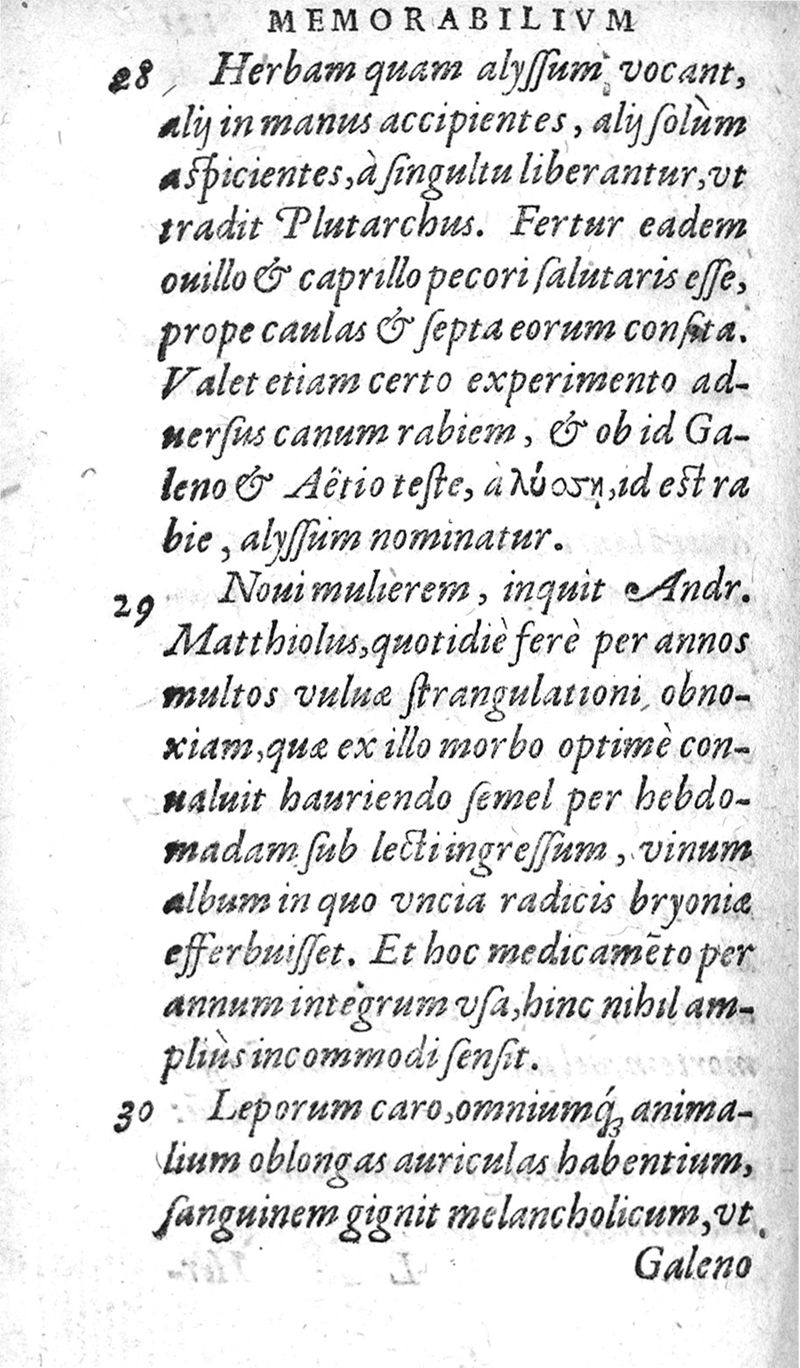 MEMORABILIVM
28 Herbam quam alyſſum vocant,
alij in manus accipientes, alij ſolùm
aſpicientes, à ſingultu liberantur, vt
tradit Plutarchus. Fertur eadem
ouillo & caprillo pecori ſalutaris eſſe,
prope caulas & ſepta eorum conſita.
Valet etiam certo experimento ad-
uerſus canum rabiem, & ob id Ga-
leno & Aëtio teſte, à λύσση, id eſt ra
bie, alyſſum nominatur.
29 Noui mulierem, inquit Andr.
Matthiolus, quotidiè ferè per annos
multos vuluæ ſtrangulationi obno-
xiam, quæ ex illo morbo optimè con-
ualuit hauriendo ſemel per hebdo-
madam ſub lecti ingreſſum, vinum
album in quo vncia radicis bryoniæ
efferbuiſſet. Et hoc medicamẽto per
annum integrum vſa, hinc nihil am-
pliùs incommodi ſenſit.
30 Leporum caro, omniumq́ꝫ anima-
lium oblongas auriculas habentium,
ſanguinem gignit melancholicum, vt
Galeno